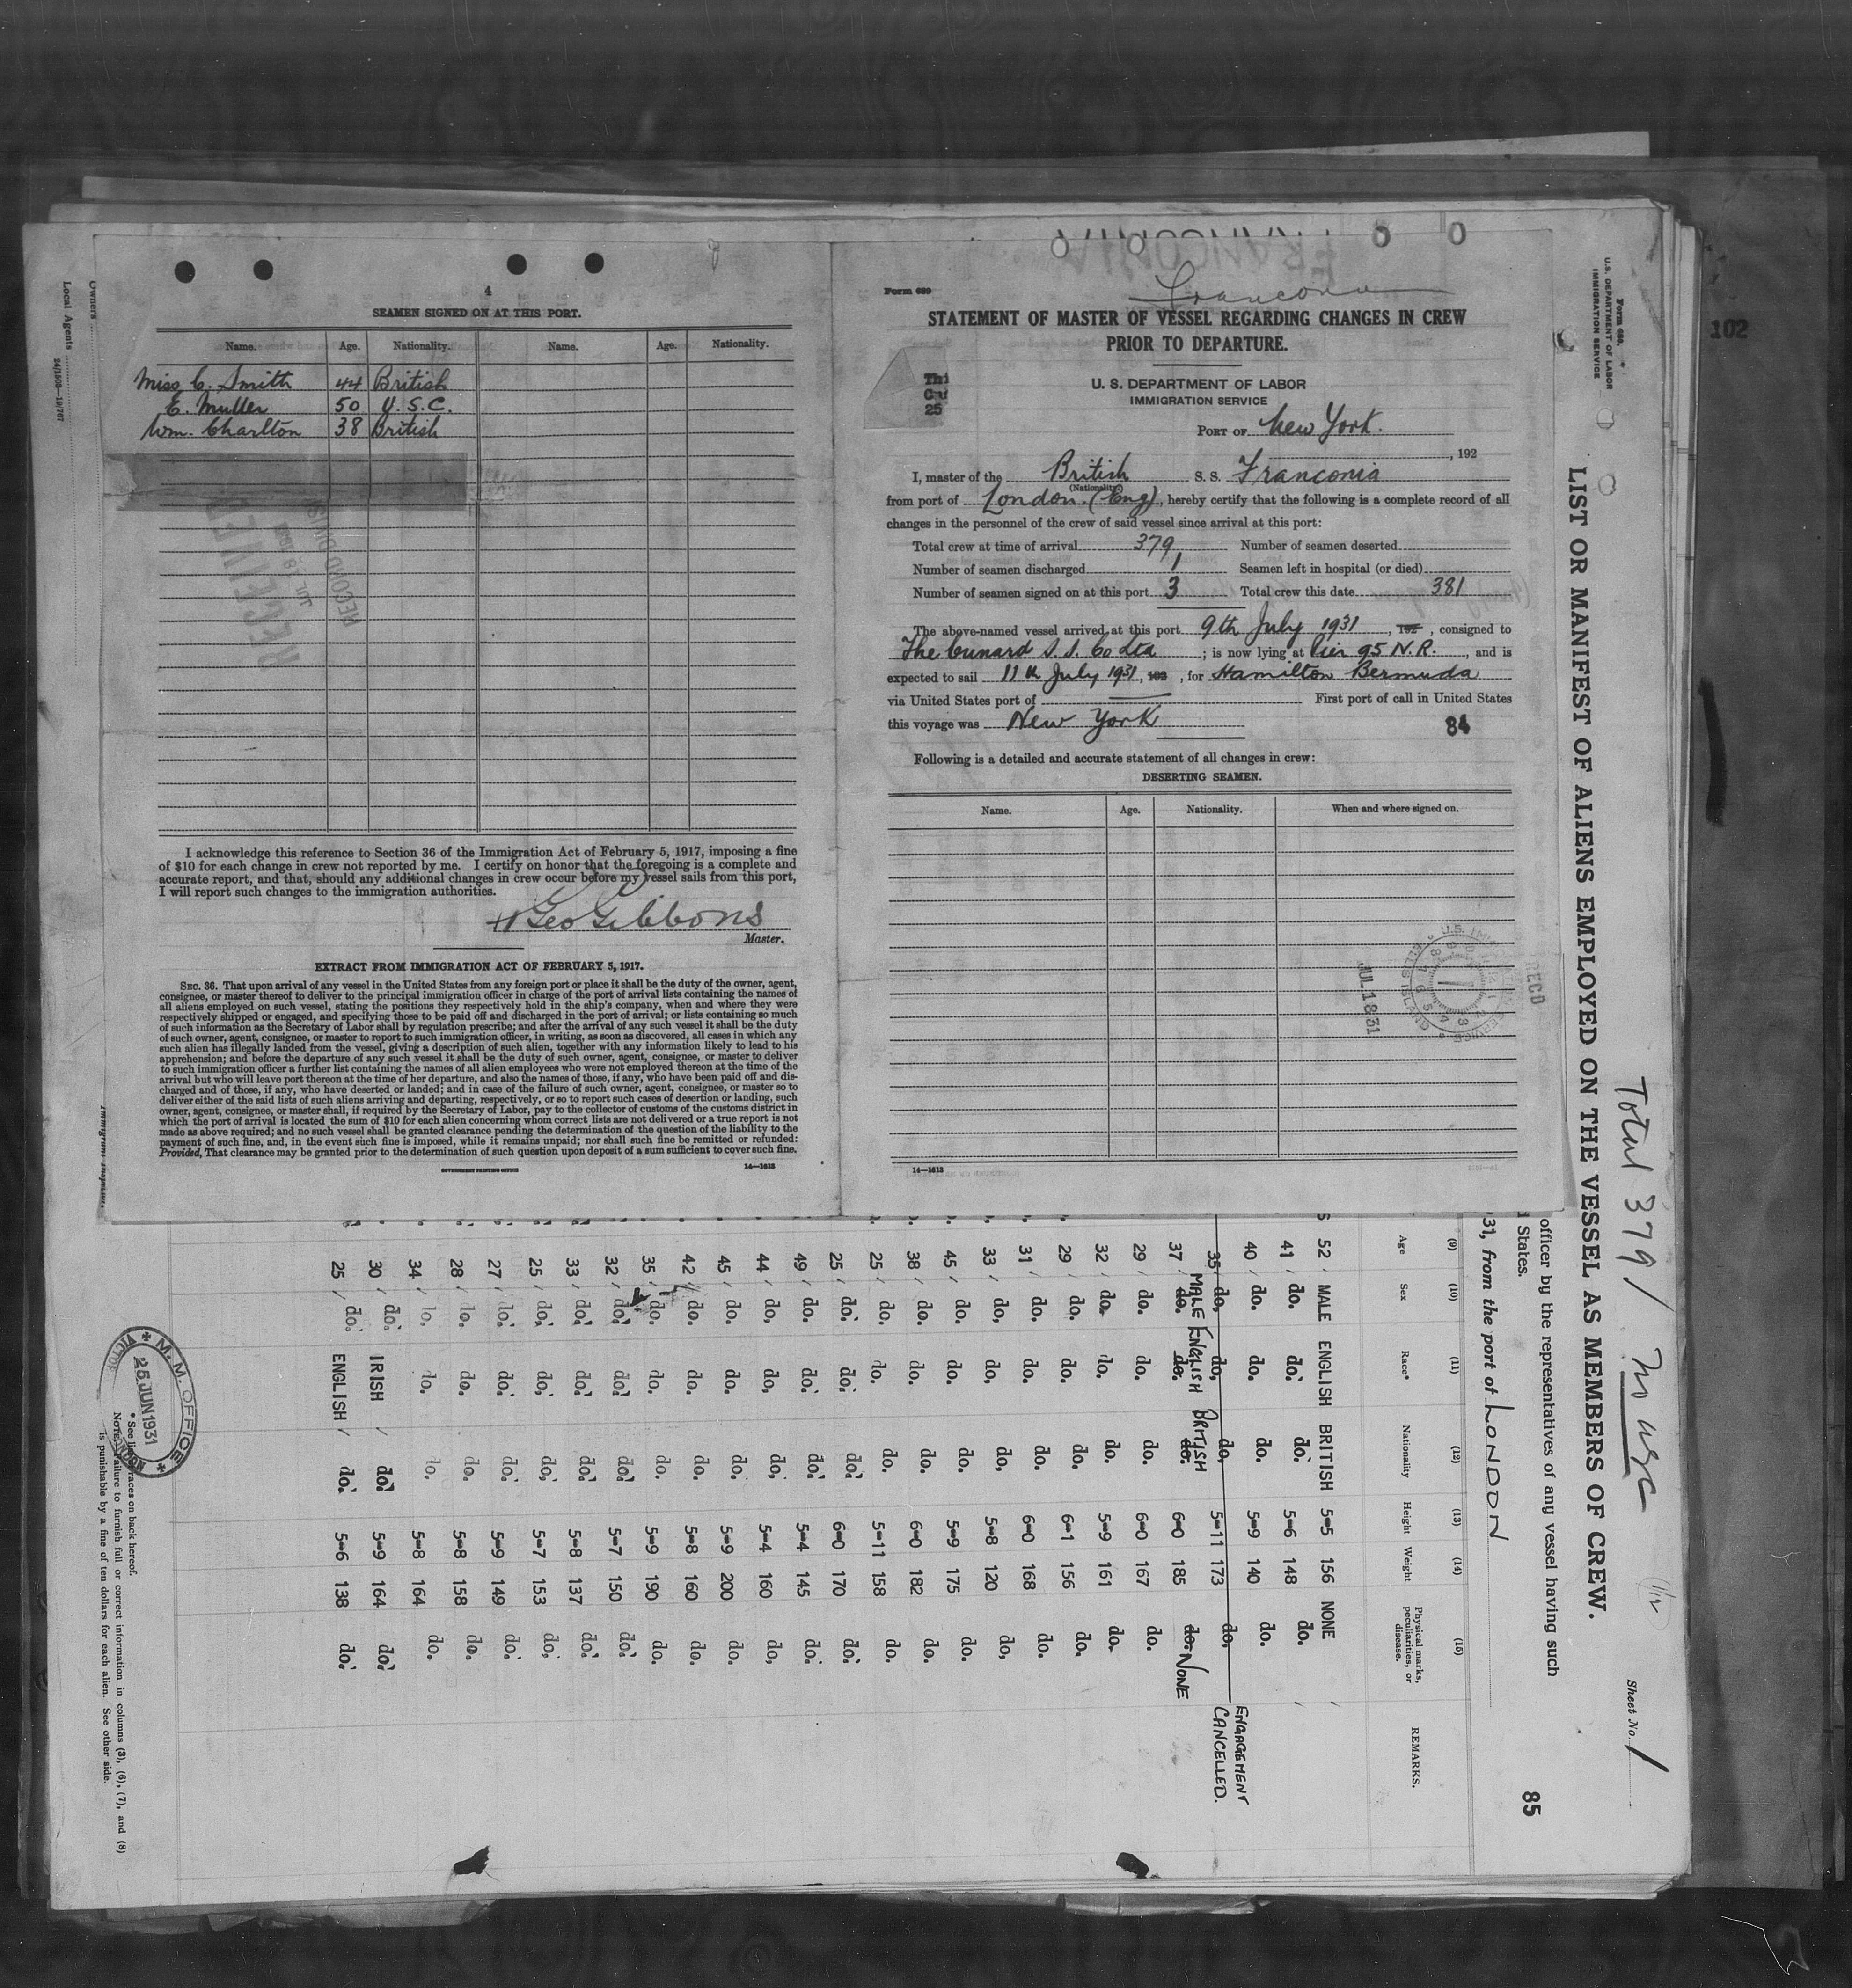 4
SEAMEN SIGNED ON AT THIS PORT.
Name. Age. Nationality. Name. Age. Nationality.
Miss C. Smith 44 British
E. Muller 50 U.S.C.
Wm. Charlton 38 British
RECEIVED
RECORD DIVISION
I acknowledge this reference to Section 36 of the Immigration Act of February 5, 1917, imposing a fine
of $10 for each change in crew not reported by me. I certify on honor that the foregoing is a complete and
accurate report, and that, should any additional changes in crew occur before my vessel sails from this port,
I will report such changes to the immigration authorities.
Geo Gibbons
Master.
EXTRACT FROM IMMIGRATION ACT OF FEBRUARY 5, 1917.
SEC. 36. That upon arrival of any vessel in the United States from any foreign port or place it shall be the duty of the owner, agent,
consignee, or master thereof to deliver to the principal immigration officer in charge of the port of arrival lists containing the names of
all aliens employed on such vessel, stating the positions they respectively hold in the ship's company, when and where they were
respectively shipped or engaged, and specifying those to be paid off and discharged in the port of arrival; or lists containing so much
of such information as the Secretary of Labor shall by regulation prescribe; and after the arrival of any such vessel it shall be the duty
of such owner, agent, consignee, or master to report to such immigration officer, in writing, as soon as discovered, all cases in which any
such alien has illegally landed from the vessel, giving a description of such alien, together with any information likely to lead to his
apprehension; and before the departure of any such vessel it shall be the duty of such owner, agent, consignee, or master to deliver
to such immigration officer a further list containing the names of all alien employees who were not employed thereon at the time of the
arrival but who will leave port thereon at the time of her departure, and also the names of those, if any, who have been paid off and dis-
charged and of those, if any, who have deserted or landed; and in case of the failure of such owner, agent, consignee, or master so to
deliver either of the said lists of such aliens arriving and departing, respectively, or so to report such cases of desertion or landing, such
owner, agent, consignee, or master shall, if required by the Secretary of Labor, pay to the collector of customs of the customs district in
which the port of arrival is located the sum of $10 for each alien concerning whom correct lists are not delivered or a true report is not
made as above required; and no such vessel shall be granted clearance pending the determination of the question of the liability to the
payment of such fine, and, in the event such fine is imposed, while it remains unpaid; nor shall such fine be remitted or refunded:
Provided, That clearance may be granted prior to the determination of such question upon deposit of a sum sufficient to cover such fine.
GOVERNMENT PRINTING OFFICE 14—1613
Form 689
Franconia
STATEMENT OF MASTER OF VESSEL REGARDING CHANGES IN CREW
PRIOR TO DEPARTURE.
U. S. DEPARTMENT OF LABOR
IMMIGRATION SERVICE
PORT OF New York.
, 192
I, master of the British S. S. Franconia
(Nationality)
from port of London. (Eng), hereby certify that the following is a complete record of all
changes in the personnel of the crew of said vessel since arrival at this port:
Total crew at time of arrival 379 Number of seamen deserted
Number of seamen discharged 1 Seamen left in hospital (or died)
Number of seamen signed on at this port 3 Total crew this date 381
The above-named vessel arrived at this port 9th July 1931, 192, consigned to
The Cunard S. S. Co Ltd ; is now lying at Pier 95 N.R. , and is
expected to sail 11th July 1931, 192 , for Hamilton Bermuda
via United States port of First port of call in United States
this voyage was New York
84
Following is a detailed and accurate statement of all changes in crew:
DESERTING SEAMEN.
Name. Age. Nationality. When and where signed on.
REC'D
JUL 18 31
14—1613
Form 689.
U. S. DEPARTMENT OF LABOR
IMMIGRATION SERVICE
102
Total 379 / no usc
Sheet No. 1
LIST OR MANIFEST OF ALIENS EMPLOYED ON THE VESSEL AS MEMBERS OF CREW.
officer by the representatives of any vessel having such
States.
85
31, from the port of LONDON
(9) (10) (11) (12) (13) (14) (15)
Age Sex Race* Nationality Height Weight Physical marks, peculiarities, or disease. REMARKS.
52 MALE ENGLISH BRITISH 5=5 156 NONE
41 do. do. do. 5=6 148 do.
40 do. do. do. 5=9 140 do.
35 do, do, do, 5=11 173 do, ENGAGEMENT CANCELLED.
37 do. MALE do. ENGLISH do. BRITISH 6=0 185 do. NONE
29 do. do. do. 6=0 167 do.
32 do. do. do. 5=9 161 do.
29 do. do. do. 6=1 156 do.
31 do. do. do. 6=0 168 do.
33 do, do, do, 5=8 120 do,
45 do. do. do. 5=9 175 do.
38 do. do. do. 6=0 182 do.
25 do. do. do. 5=11 158 do.
25 do. do. do. 6=0 170 do.
49 do. do. do. 5=4 145 do.
44 do, do, do, 5=4 160 do,
45 do. do. do. 5=9 200 do.
42 do. do. do. 5=8 160 do.
35 do. do. do. 5=9 190 do.
32 do. do. do. 5=7 150 do.
33 do. do. do. 5=8 137 do.
25 do, do, do, 5=7 153 do,
27 do. do. do. 5=9 149 do.
28 do. do. do. 5=8 158 do.
34 do. do. do. 5=8 164 do.
30 do. IRISH do. 5=9 164 do.
25 do. ENGLISH do. 5=6 138 do.
M. M. OFFICE
25 JUN 1931
* See list of races on back hereof.
NOTE.—Failure to furnish full or correct information in columns (3), (6), (7), and (8)
is punishable by a fine of ten dollars for each alien. See other side.
Immigrant Inspector.
Owners
Local Agents